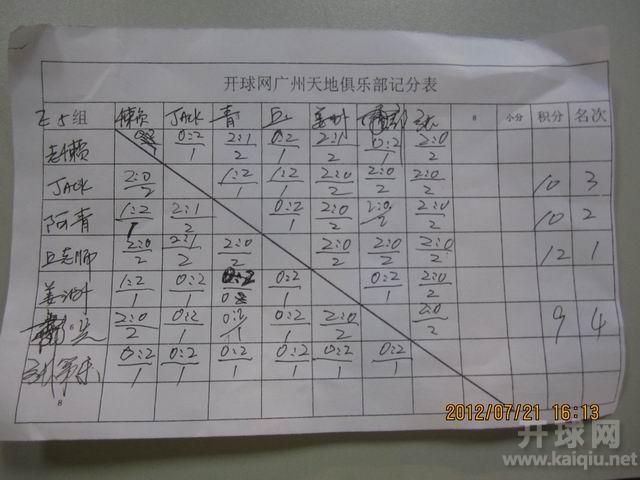 开球网广州天地俱乐部记分表
组 懒 JACK 青 丘 姜 8 小分 积分 名次
老懒 0:2/1 2:1/2 0:2/1 2:1/2 0:2/1 2:0/2
JACK 2:0/2 1:2/1 1:2/1 2:0/2 2:0/2 2:0/2 10 3
阿青 1:2/1 2:1/2 0:2/1 2:0/2 2:0/2 2:0/2 10 2
丘老师 2:0/2 2:1/2 2:0/2 2:0/2 2:0/2 2:0/2 12 1
姜 1:2/1 0:2/1 0:2 0:2/1 0:2/1 2:0/2
2:0/2 0:2/1 0:2/1 0:2/1 2:0/2 2:0/2 9 4
0:2/1 0:2/1 0:2/1 0:2/1 0:2/1 0:2/1
8
2012/07/21 16:13
开球网
www.kaiqiu.net